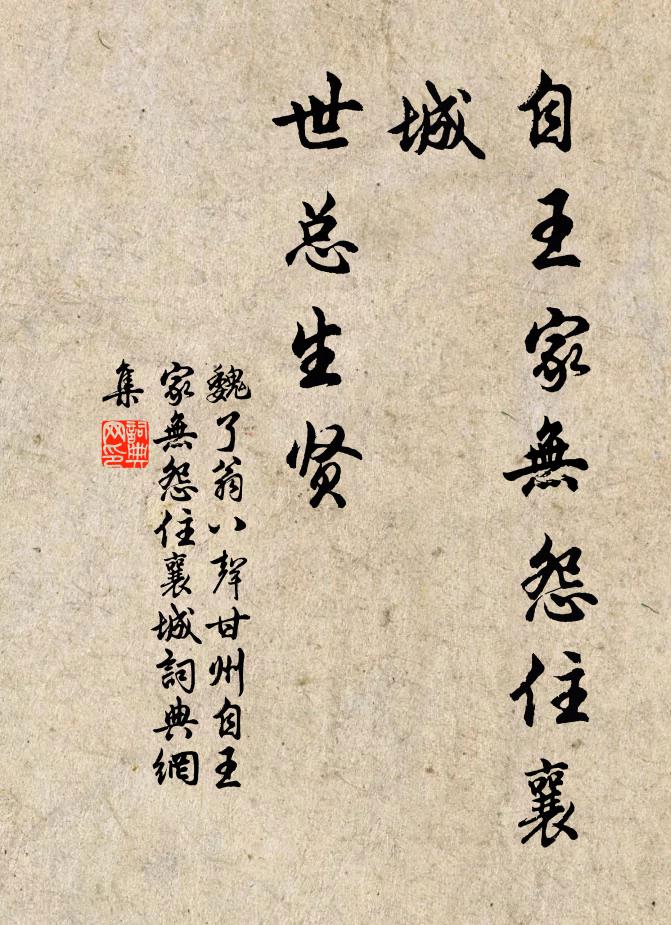 自王家無怨住襄
城
世总生贤
魏了翁八聲甘州自王
家無怨住襄城詞典網
集
詞典
网印